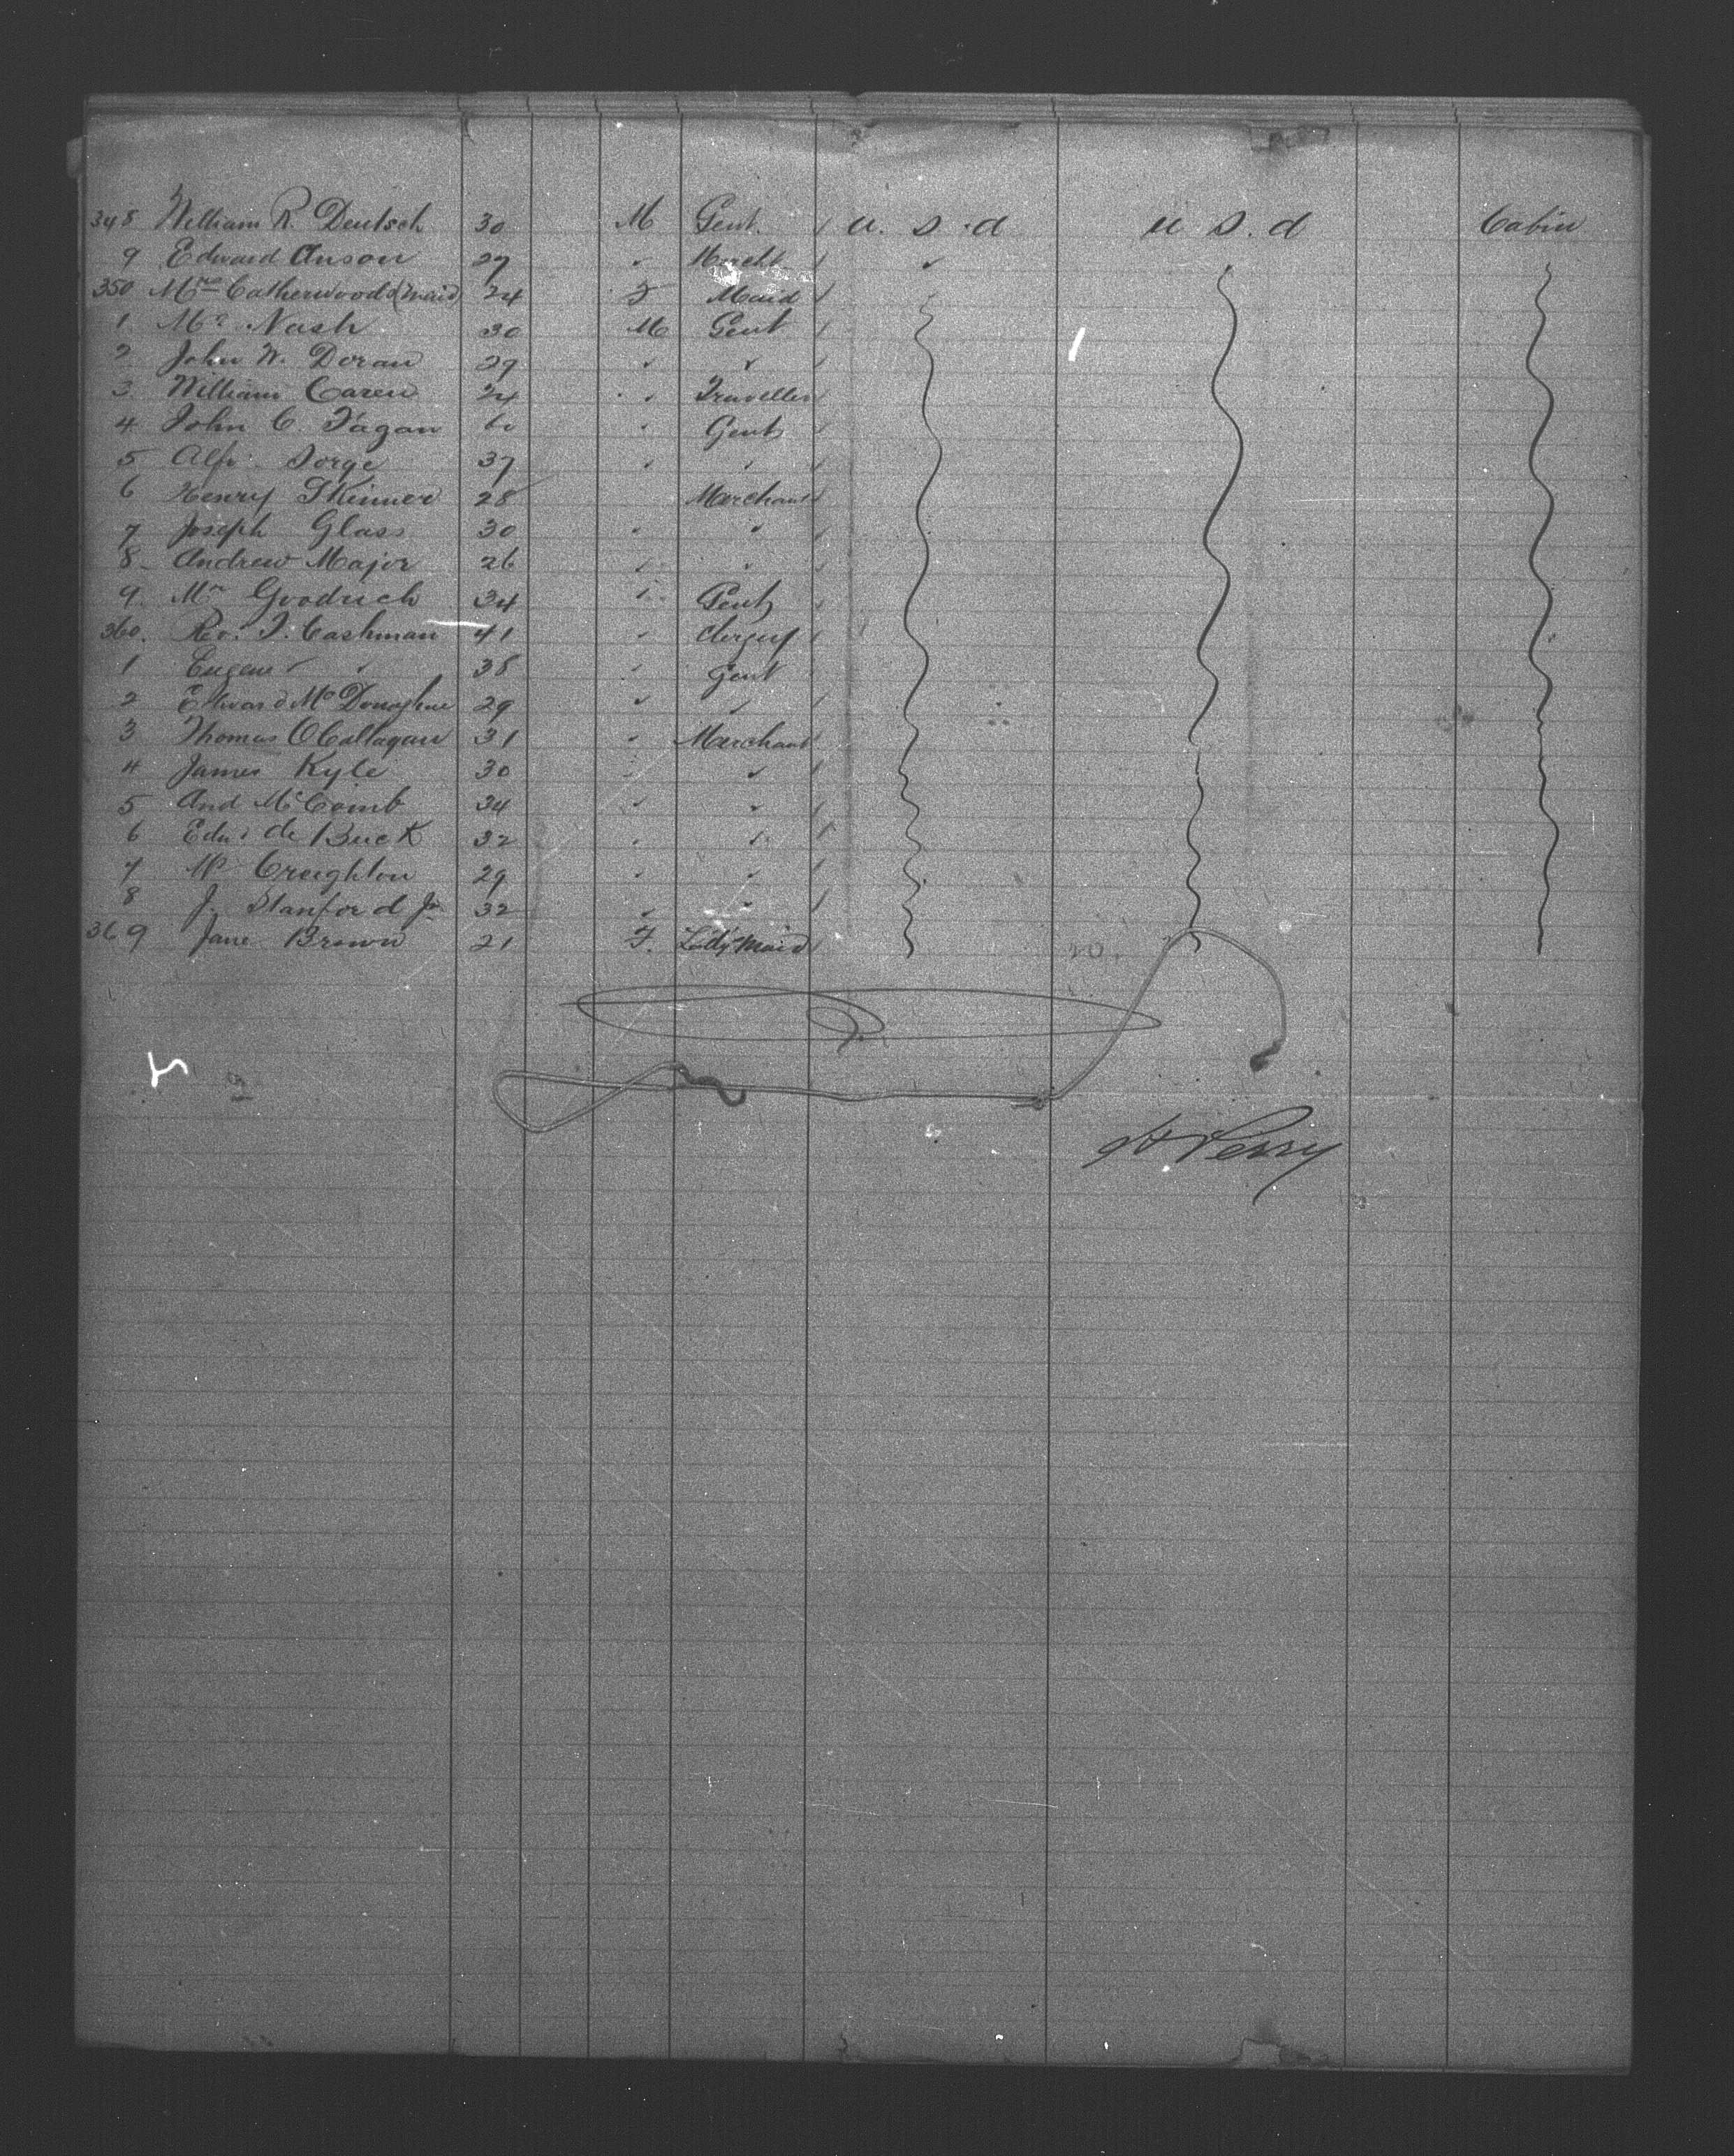 348 William R. Deutsch 30 M Gent. / U. S. d U S. d Cabin
9 Edward Anson 27 " Mercht / "
350 Mrs Catherwood (maid) 24 F Maid /
1 Mr Nash 30 M Gent /
2 John W. Doran 29 " " /
3 William Caren 24 " Traveller /
4 John C. Fagan 60 " Gent /
5 Alf. Sorge 37 " " /
6 Henry Skinner 28 Merchant /
7 Joseph Glass 30 " " /
8 Andrew Major 26 " " /
9. Mr Goodrich 34 " Gent /
360. Rev. T. Cashman 41 " Clergy /
1 Eugene " " 38 " Gent
2 Edward McDonoghue 29 " " /
3 Thomas OCallagan 31 " Merchant /
4 James Kyle 30 " " /
5 And McComb 34 " " /
6 Edw. de Buck 32 " " /
7 Mr Creighton 29 " " /
8 J. Stanford Jr 32 " " /
369 Jane Brown 21 F. Ladys maid /
H Perry